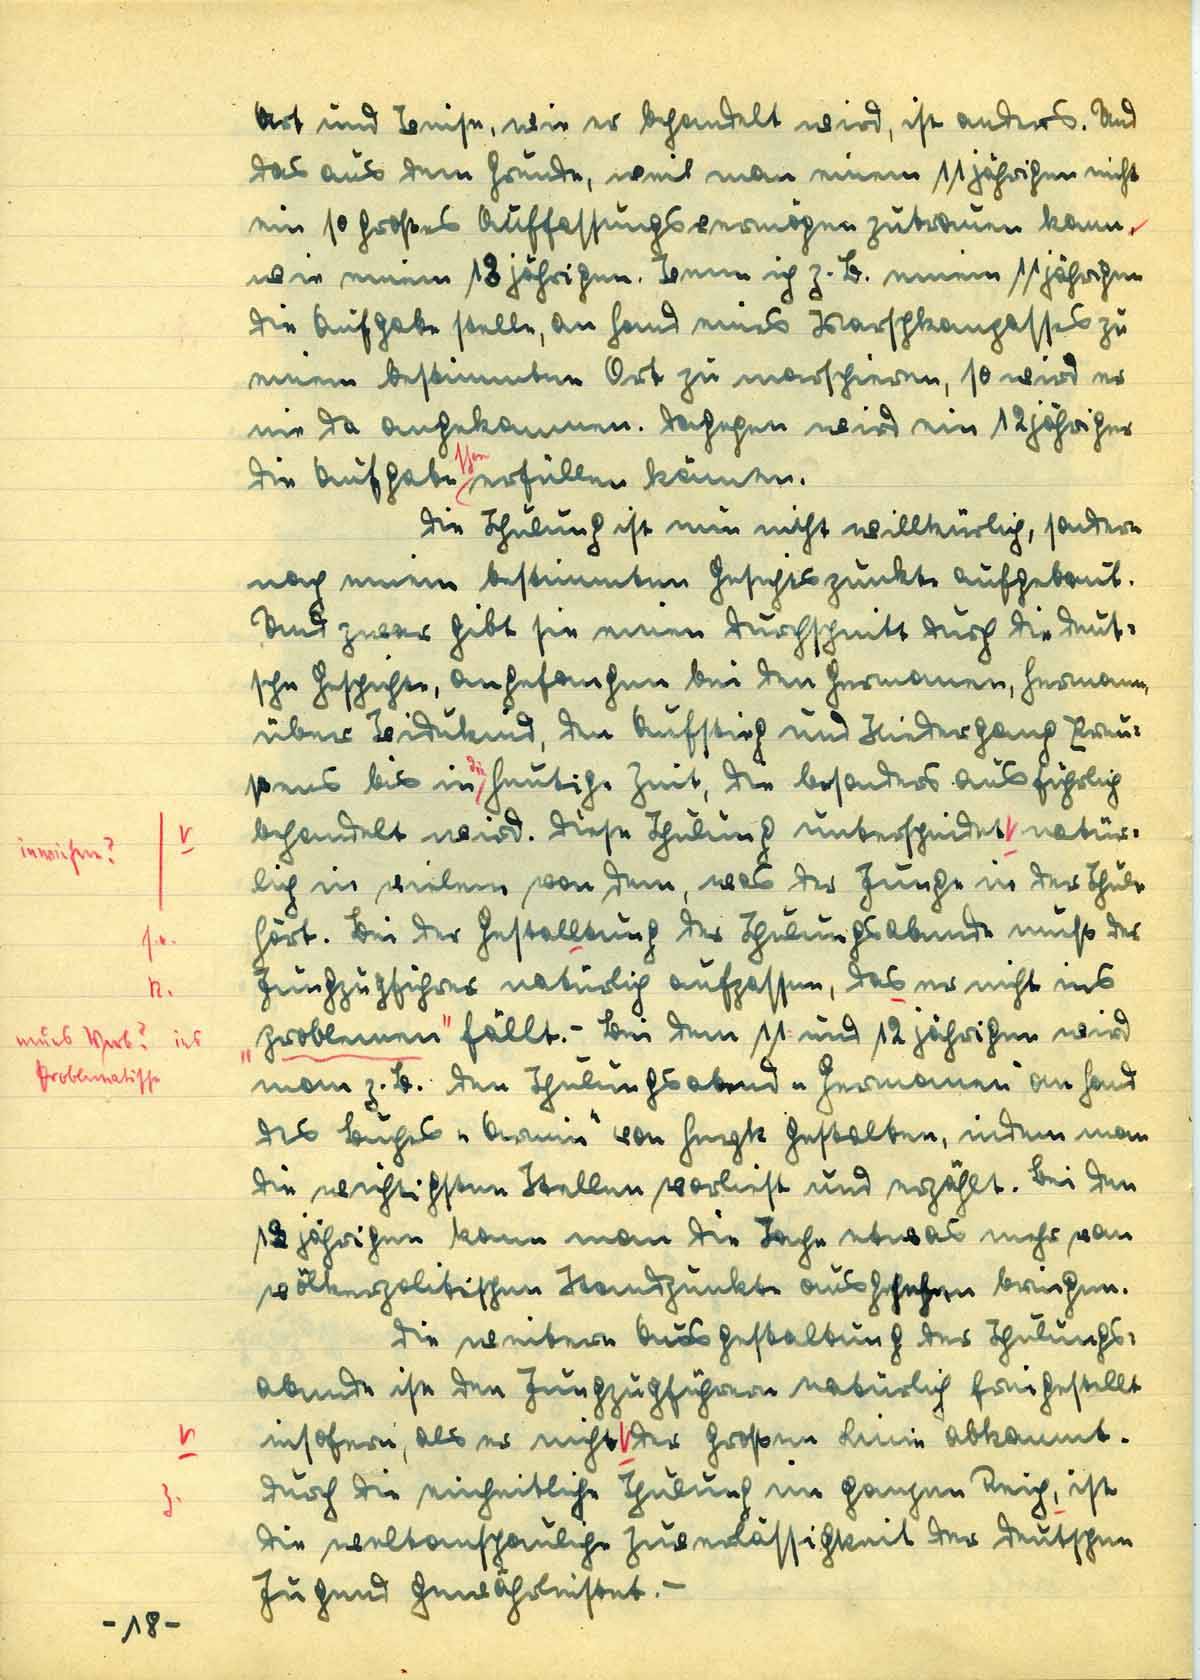 Art und Weise, wie er behandelt wird, ist anders. Und
das aus dem Grunde, weil man einem 11jährigen nicht
ein so großes Auffassungsvermögen zutrauen kann,
wie einem 13jährigen. Wenn ich z.B. einem 11jährigen
die Aufgabe stelle, an Hand eines Marschkompasses zu
einem bestimmten Ort zu marschieren, so wird er
nie da angekommen. Dagegen wird ein 12jähriger
die Aufgabe schon erfüllen können.
Die Schulung ist nun nicht willkürlich, sondern
nach einem bestimmten Gesichtspunkte aufgebaut.
Und zwar gibt sie einen Durchschnitt durch die deut-
sche Geschichte, angefangen bei den Germanen, Hermann,
über Widukind, den Aufstieg und Niedergang Preu-
ßens bis in die heutige Zeit, die besonders ausführlich
behandelt wird. Diese Schulung unterscheidet V natür-
inwiefern? V
lich in vielem von dem, was der Junge in der Schule
hört. Bei der Gestalltung der Schulungsabende muß der
Jungzugführer natürlich aufpassen, das er nicht ins
R.
„problemen" fällt.- Bei dem 11 und 12jährigen wird
neues Verb? ins
Problematische
man z.B. den Schulungsabend „Germanen" an Hand
des Buches „Armin" von Hugk gestalten, indem man
die wichtigsten Stellen vorliest und erzählt. Bei den
13jährigen kann man die Sache etwas mehr vom
völkerpolitischen Standpunkte aus gesehen bringen.
Die weitere Ausgestaltung der Schulungs-
abende ist den Jungzugführern natürlich freigestellt
insofern, als er nicht V der großen Linie abkommt.
V
Durch die einheitliche Schulung im ganzen Reich, ist
Z.
die weltanschauliche Zuverlässigkeit der deutschen
Jugend gewährleistet.-
-18-